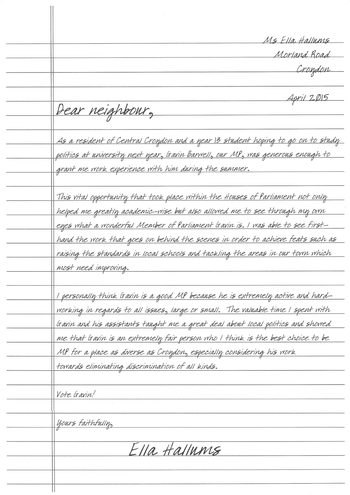 Ms Ella Hallums
Morland Road
Croydon
April 2015
Dear neighbour,
As a resident of Central Croydon and a year 13 student hoping to go on to study
politics at unversity next year, Gavin Barwell, our MP, was generous enough to
grant me work experience with him during the summer.
This vital opportunity that took place within the Houses of Parliament not only
helped me greatly academic-wise but also allowed me to see through my own
eyes what a wonderful Member of Parliament Gavin is. I was able to see first-
hand the work that goes on behind the scenes in order to achieve feats such as
raising the standards in local schools and tackling the areas in our town which
most need improving.
I personally think Gavin is a good MP because he is extremely active and hard-
working in regards to all issues, large or small. The valuable time I spent with
Gavin and his assistants taught me a great deal about local politics and showed
me that Gavin is an extremely fair person who I think is the best choice to be
MP for a place as diverse as Croydon, especially considering his work
towards eliminating discrimination of all kinds.
Vote Gavin!
Yours faithfully,
Ella Hallums